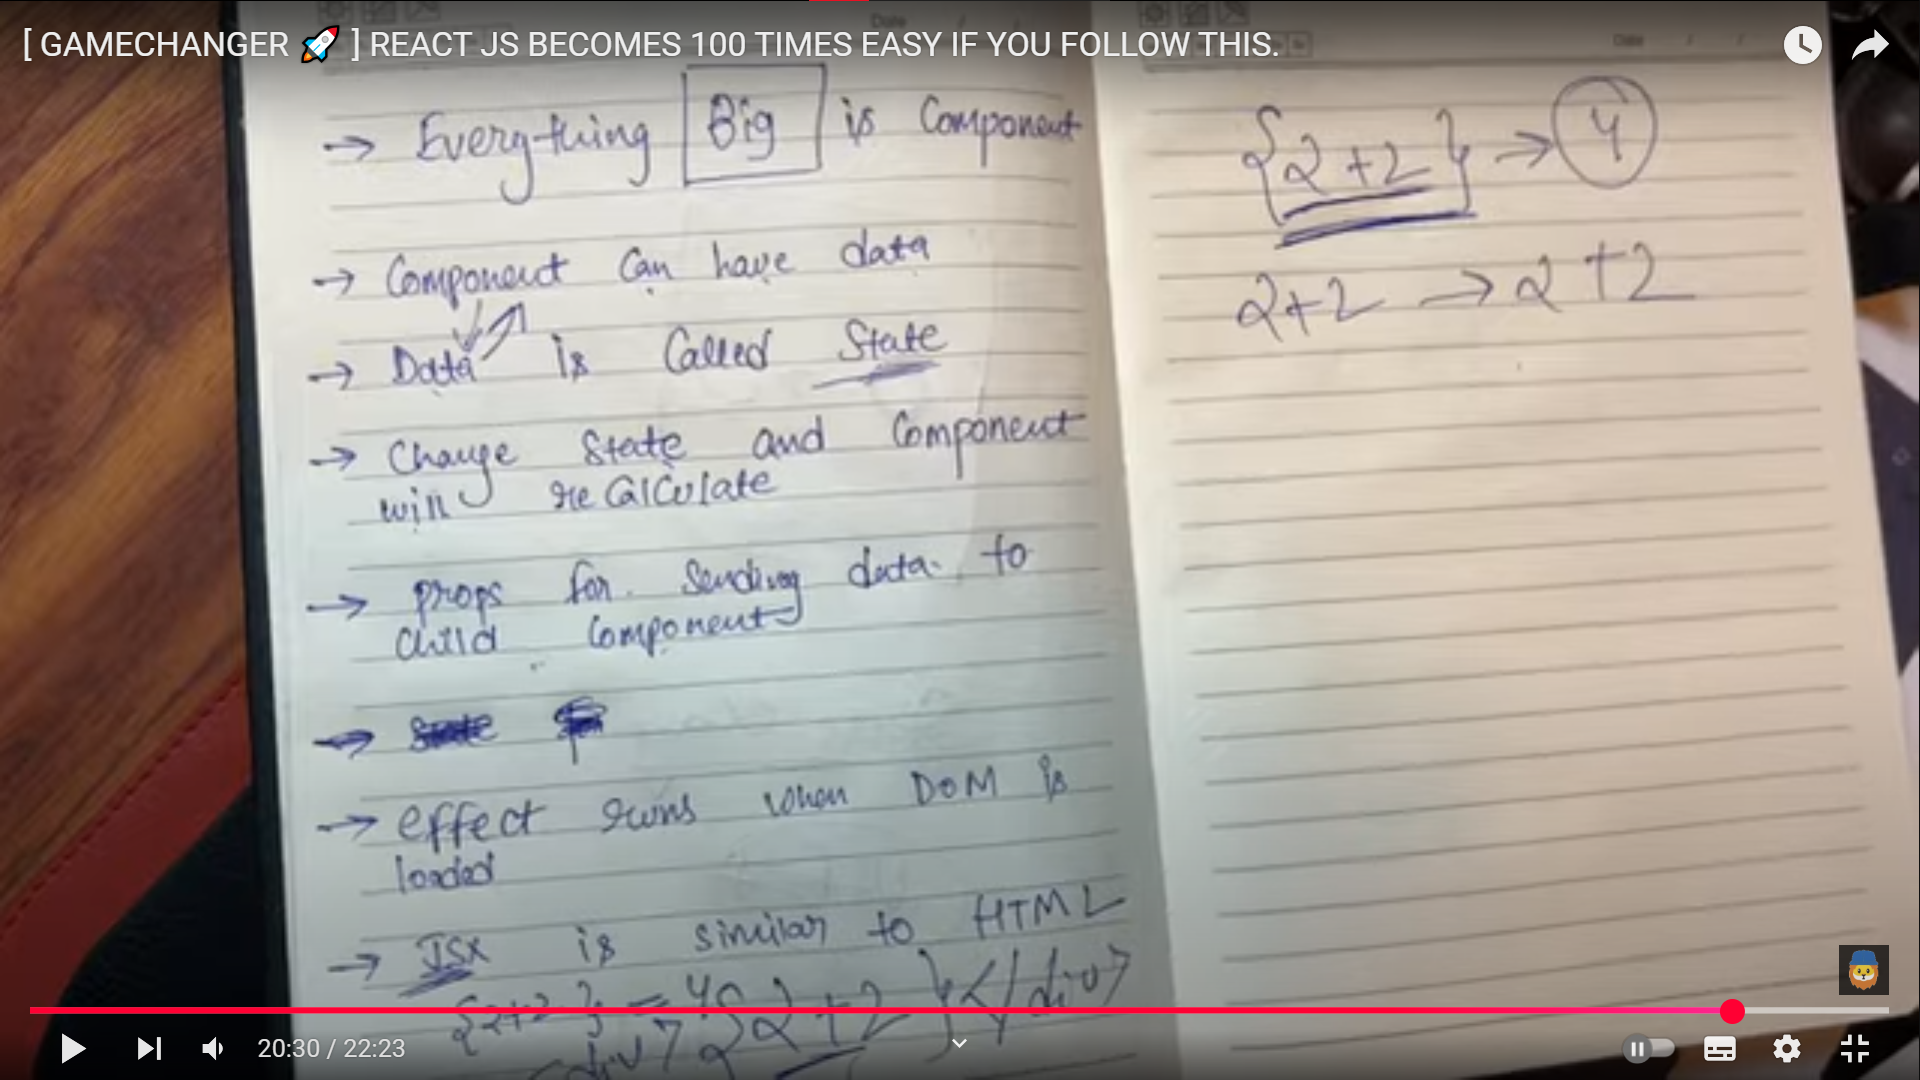 [ GAMECHANGER 🚀 ] REACT JS BECOMES 100 TIMES EASY IF YOU FOLLOW THIS.
→ Everything Big is Component
→ Component Can have data
→ Data is Called State
→ Change State and Component
will reCalculate
→ props for sending data to
child Component
→
→ effect runs when DOM is
loaded
→ JSX is similar to HTML
{2+2} = 4
<div> {2+2}</div>
{2+2} → 4
2+2 → 2+2
20:30 / 22:23